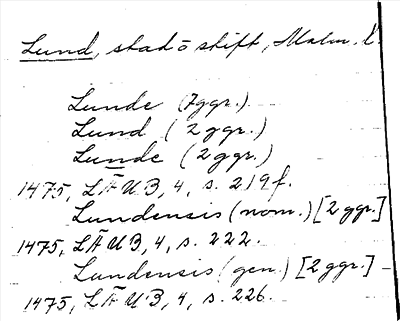 Lund, stad o stift, Malm. l.
Lunde (7ggr.)
Lund (2 ggr.)
Lunde (2 ggr.)
1475, LÄUB, 4, s. 219f.
Lundensis (nom.) [2 ggr.]
1475, LÄUB, 4, s. 222.
Lundensis (gen.) [2 ggr.] –
1475, LÄUB, 4, s. 226.